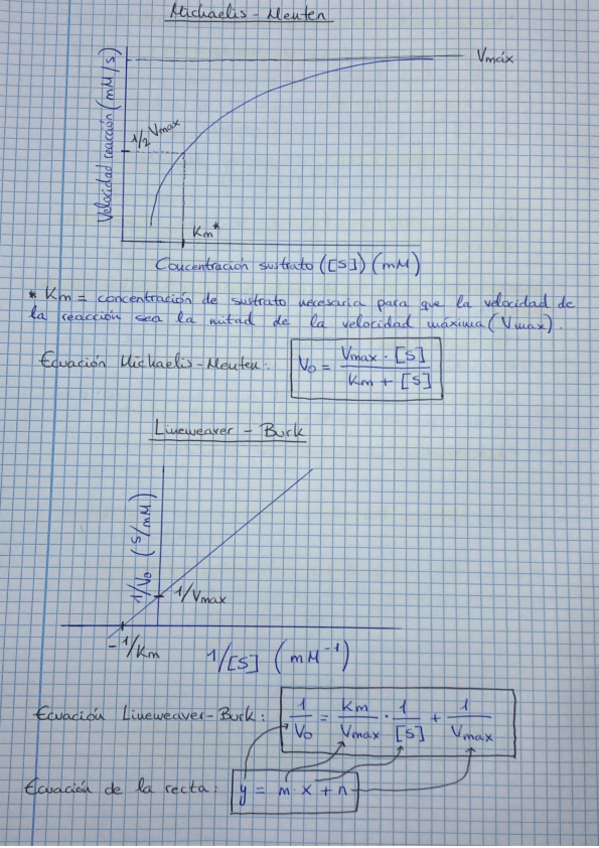 Michaelis - Menten
Vmáx
Velocidad reacción (mM/s)
1/2 Vmax
Km*
Concentración sustrato ([S]) (mM)
* Km = concentración de sustrato necesaria para que la velocidad de
la reacción sea la mitad de la velocidad máxima (Vmax).
Ecuación Michaelis-Menten: V₀ = Vmax · [S] / Km + [S]
Lineweaver - Burk
1/V₀ (s/mM)
1/Vmax
-1/Km
1/[S] (mM⁻¹)
Ecuación Lineweaver-Burk: 1/V₀ = Km/Vmax · 1/[S] + 1/Vmax
Ecuación de la recta: y = m · x + n